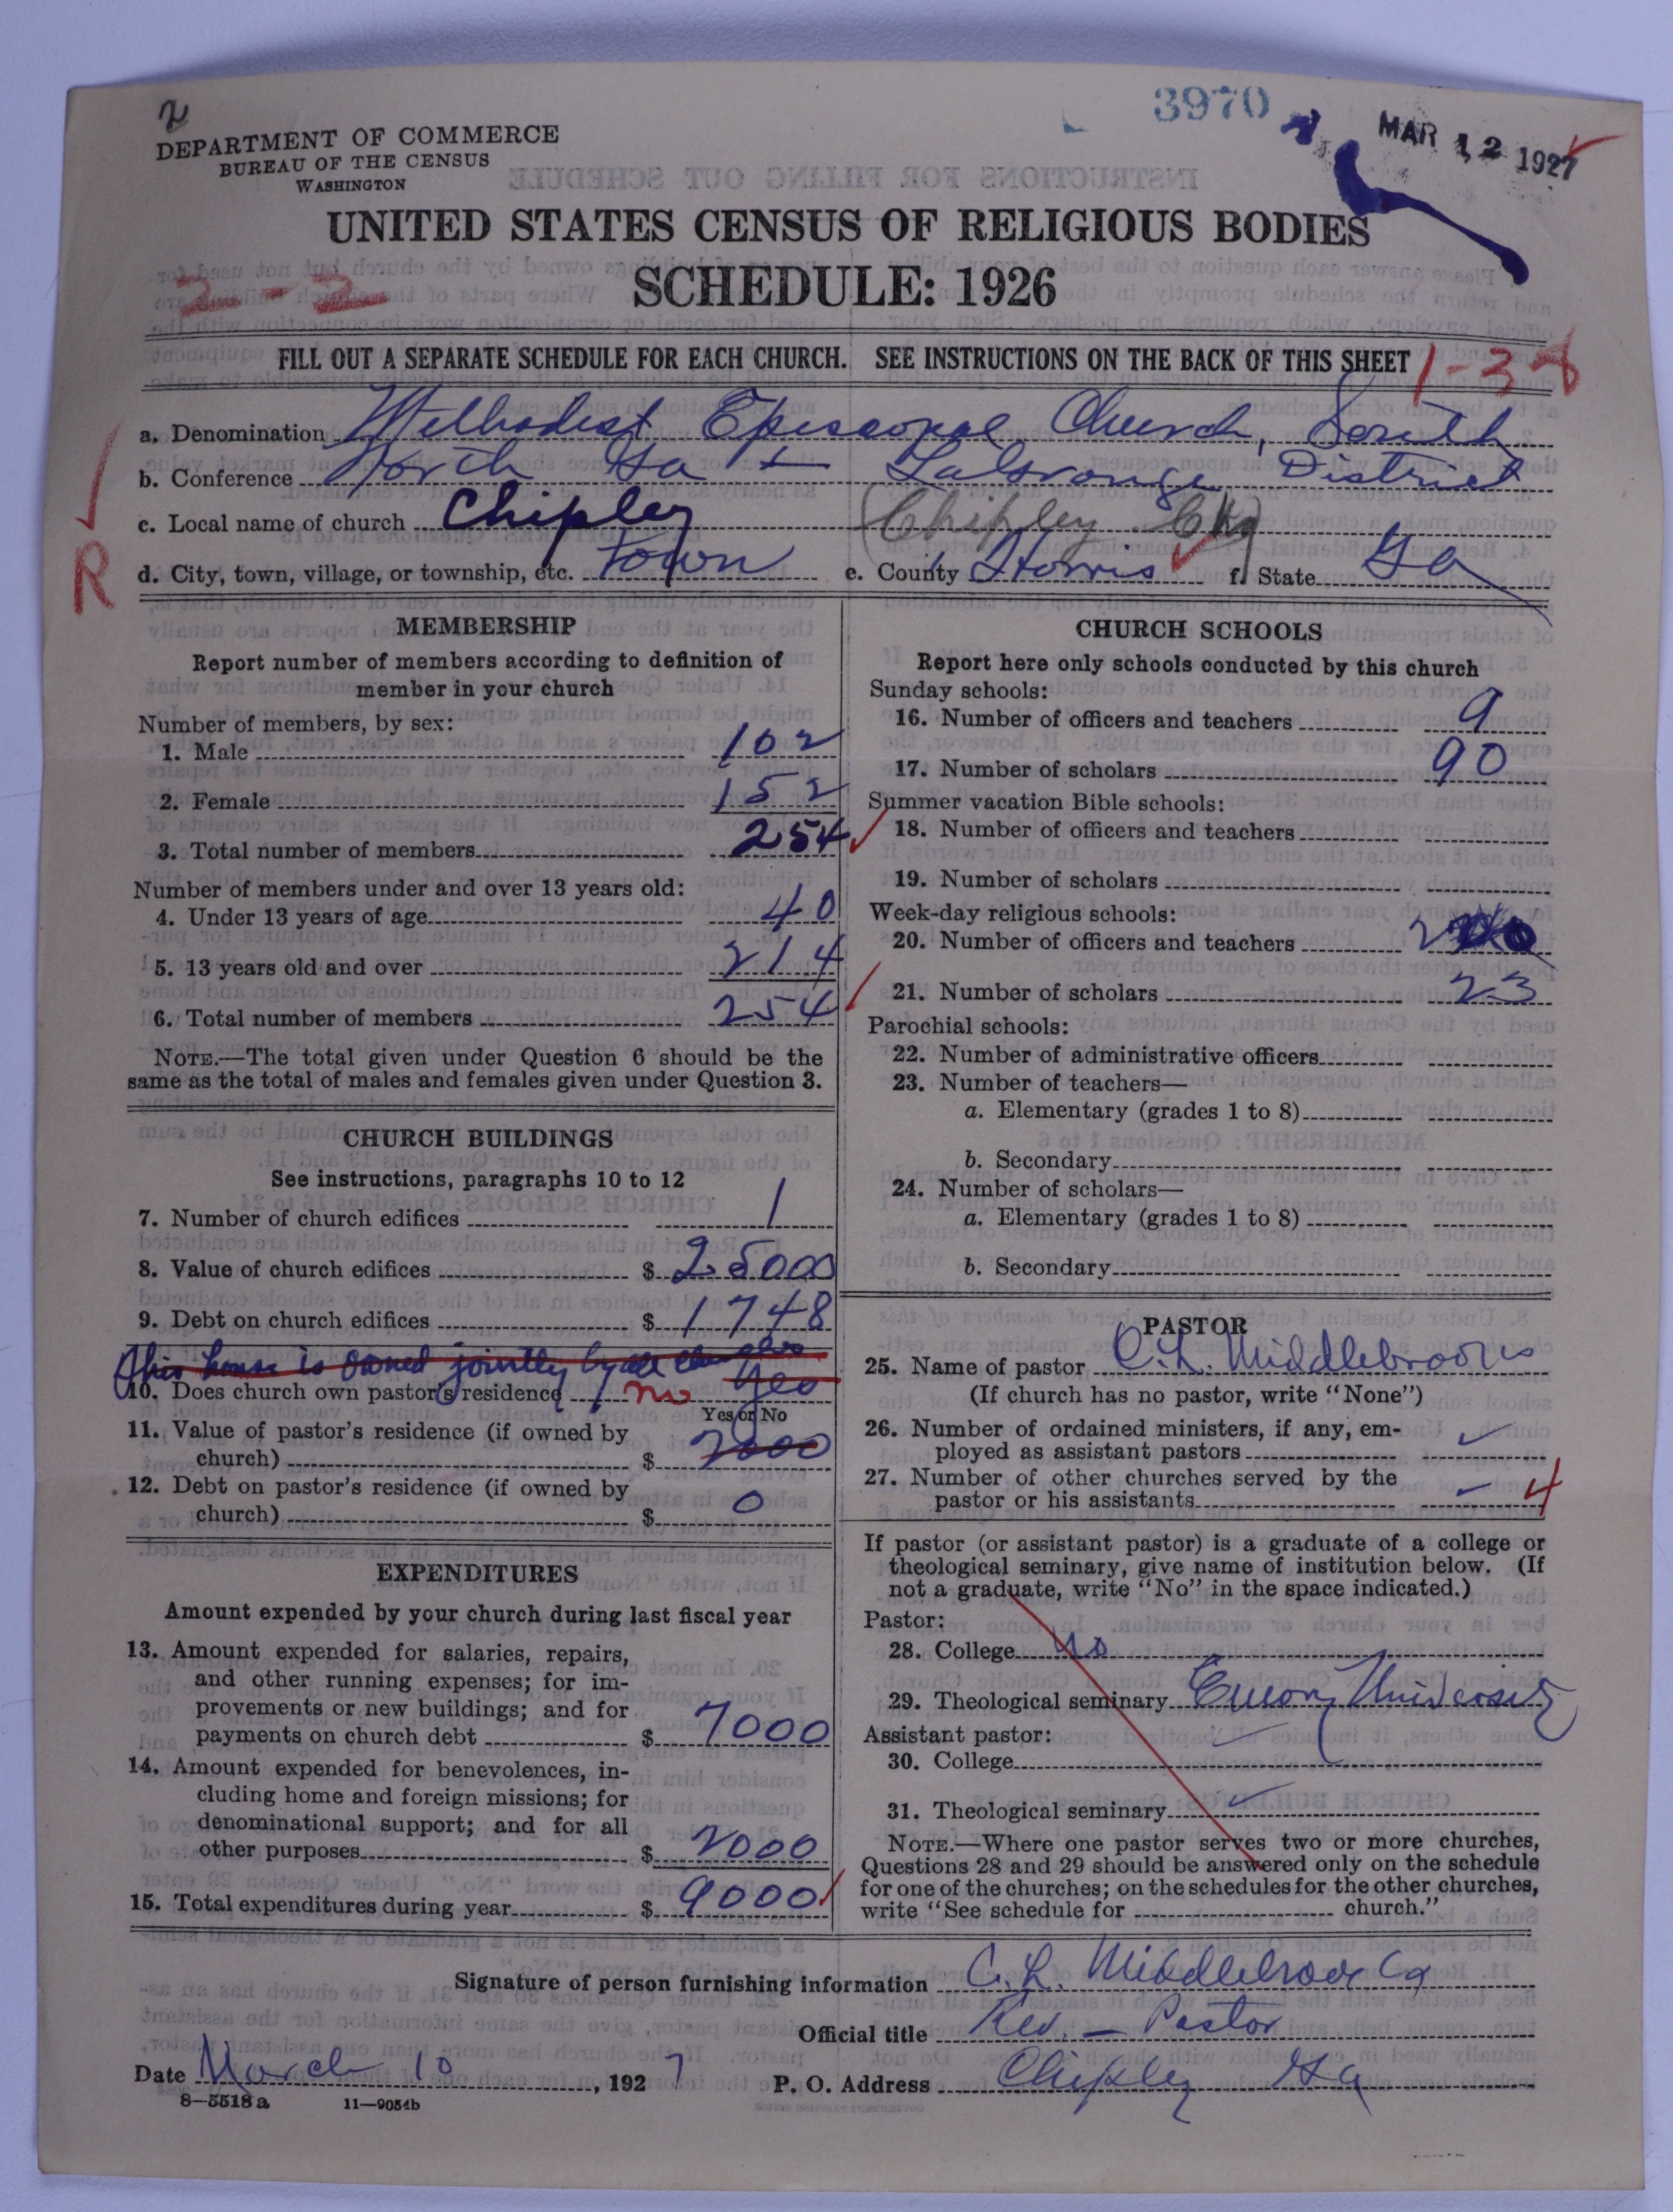 2
3970
MAR 12 1927
DEPARTMENT OF COMMERCE
BUREAU OF THE CENSUS
WASHINGTON
UNITED STATES CENSUS OF RELIGIOUS BODIES
SCHEDULE: 1926
2-2
FILL OUT A SEPARATE SCHEDULE FOR EACH CHURCH. SEE INSTRUCTIONS ON THE BACK OF THIS SHEET
1-3-8
a. Denomination Methodist Episcopal Church, South
b. Conference North Ga — LaGrange District
c. Local name of church Chipley (Chipley Chg)
d. City, town, village, or township, etc. Town e. County Harris f. State Ga
R
MEMBERSHIP
Report number of members according to definition of
member in your church
Number of members, by sex:
1. Male 102
2. Female 152
3. Total number of members 254
Number of members under and over 13 years old:
4. Under 13 years of age 40
5. 13 years old and over 214
6. Total number of members 254
NOTE.—The total given under Question 6 should be the
same as the total of males and females given under Question 3.
CHURCH BUILDINGS
See instructions, paragraphs 10 to 12
7. Number of church edifices 1
8. Value of church edifices $ 25000
9. Debt on church edifices $ 1748
This house is owned jointly by all churches
10. Does church own pastor's residence no Yes
Yes or No
11. Value of pastor's residence (if owned by
church) $ 2000
12. Debt on pastor's residence (if owned by
church) $ 0
EXPENDITURES
Amount expended by your church during last fiscal year
13. Amount expended for salaries, repairs,
and other running expenses; for im-
provements or new buildings; and for
payments on church debt $ 7000
14. Amount expended for benevolences, in-
cluding home and foreign missions; for
denominational support; and for all
other purposes $ 2000
15. Total expenditures during year $ 9000
CHURCH SCHOOLS
Report here only schools conducted by this church
Sunday schools:
16. Number of officers and teachers 9
17. Number of scholars 90
Summer vacation Bible schools:
18. Number of officers and teachers
19. Number of scholars
Week-day religious schools:
20. Number of officers and teachers 2
21. Number of scholars 23
Parochial schools:
22. Number of administrative officers
23. Number of teachers—
a. Elementary (grades 1 to 8)
b. Secondary
24. Number of scholars—
a. Elementary (grades 1 to 8)
b. Secondary
PASTOR
25. Name of pastor C. L. Middlebrooks
(If church has no pastor, write "None")
26. Number of ordained ministers, if any, em-
ployed as assistant pastors
27. Number of other churches served by the
pastor or his assistants – 4
If pastor (or assistant pastor) is a graduate of a college or
theological seminary, give name of institution below. (If
not a graduate, write "No" in the space indicated.)
Pastor:
28. College no
29. Theological seminary Emory University
Assistant pastor:
30. College
31. Theological seminary
NOTE.—Where one pastor serves two or more churches,
Questions 28 and 29 should be answered only on the schedule
for one of the churches; on the schedules for the other churches,
write "See schedule for church."
Signature of person furnishing information C. L. Middlebrooks
Official title Rev. — Pastor
Date March 10, 1927 P. O. Address Chipley Ga
8—5518a 11—9054b